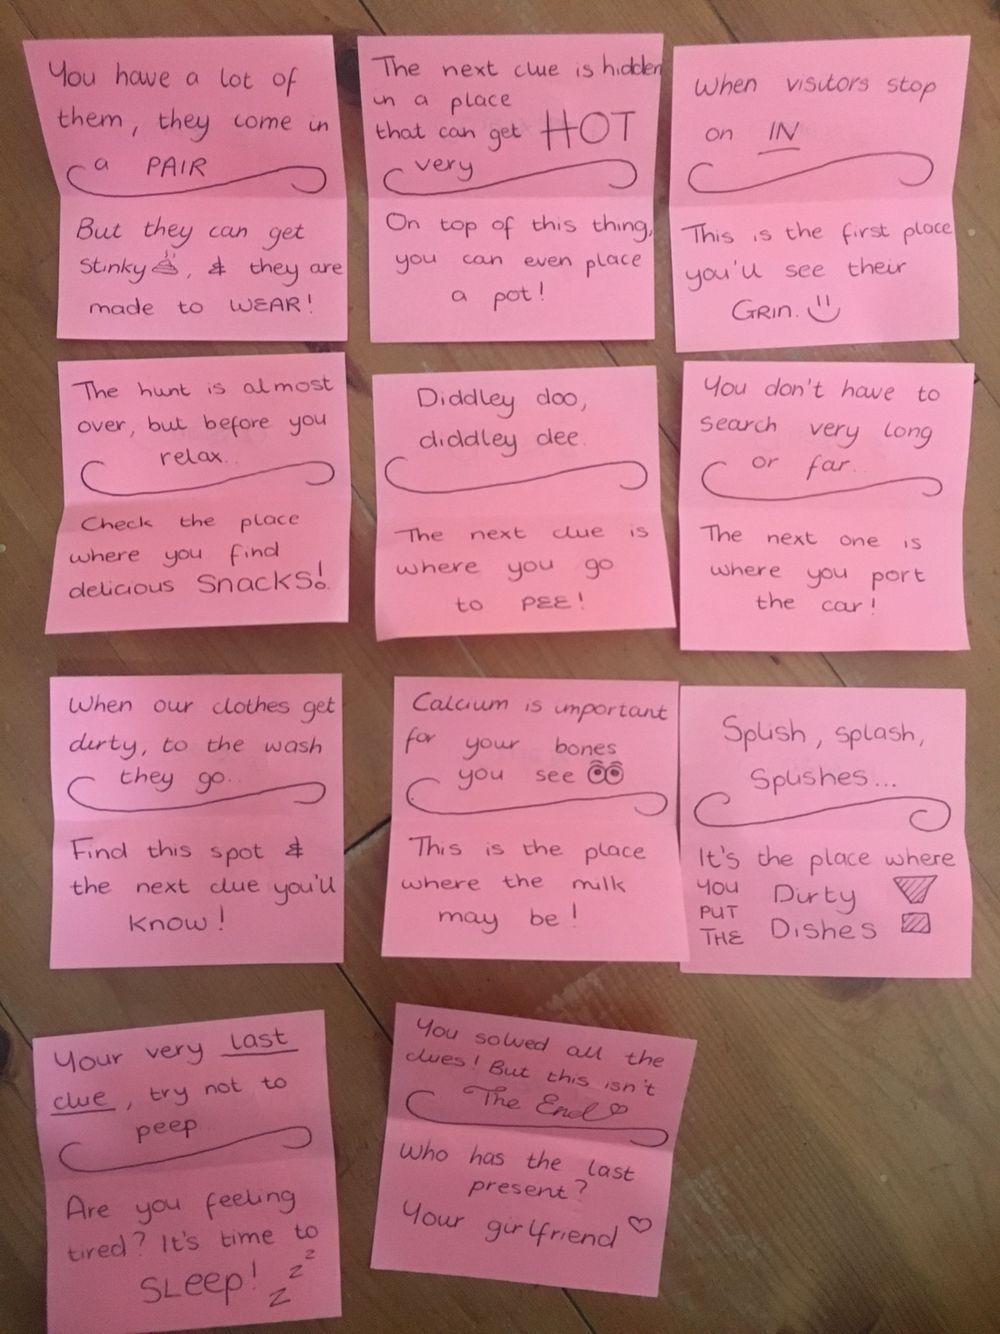 You have a lot of
them, they come in
a PAIR
But they can get
stinky, & they are
made to WEAR!
The next clue is hidden
in a place
that can get HOT
very
On top of this thing,
you can even place
a pot!
When visitors stop
on IN
This is the first place
you'll see their
GRIN.
The hunt is almost
over, but before you
relax..
Check the place
where you find
delicious Snacks!
Diddley doo,
diddley dee.
The next clue is
where you go
to PEE!
You don't have to
search very long
or far..
The next one is
where you port
the car!
When our clothes get
dirty, to the wash
they go..
Find this spot &
the next clue you'll
know!
Calcium is important
for your bones
you see
This is the place
where the milk
may be!
Splish, splash,
Splishes...
It's the place where
YOU Dirty
PUT
THE Dishes
Your very last
clue, try not to
peep.
Are you feeling
tired? It's time to
SLEEP! z z z
You solved all the
clues! But this isn't
The End
Who has the last
present?
Your girlfriend